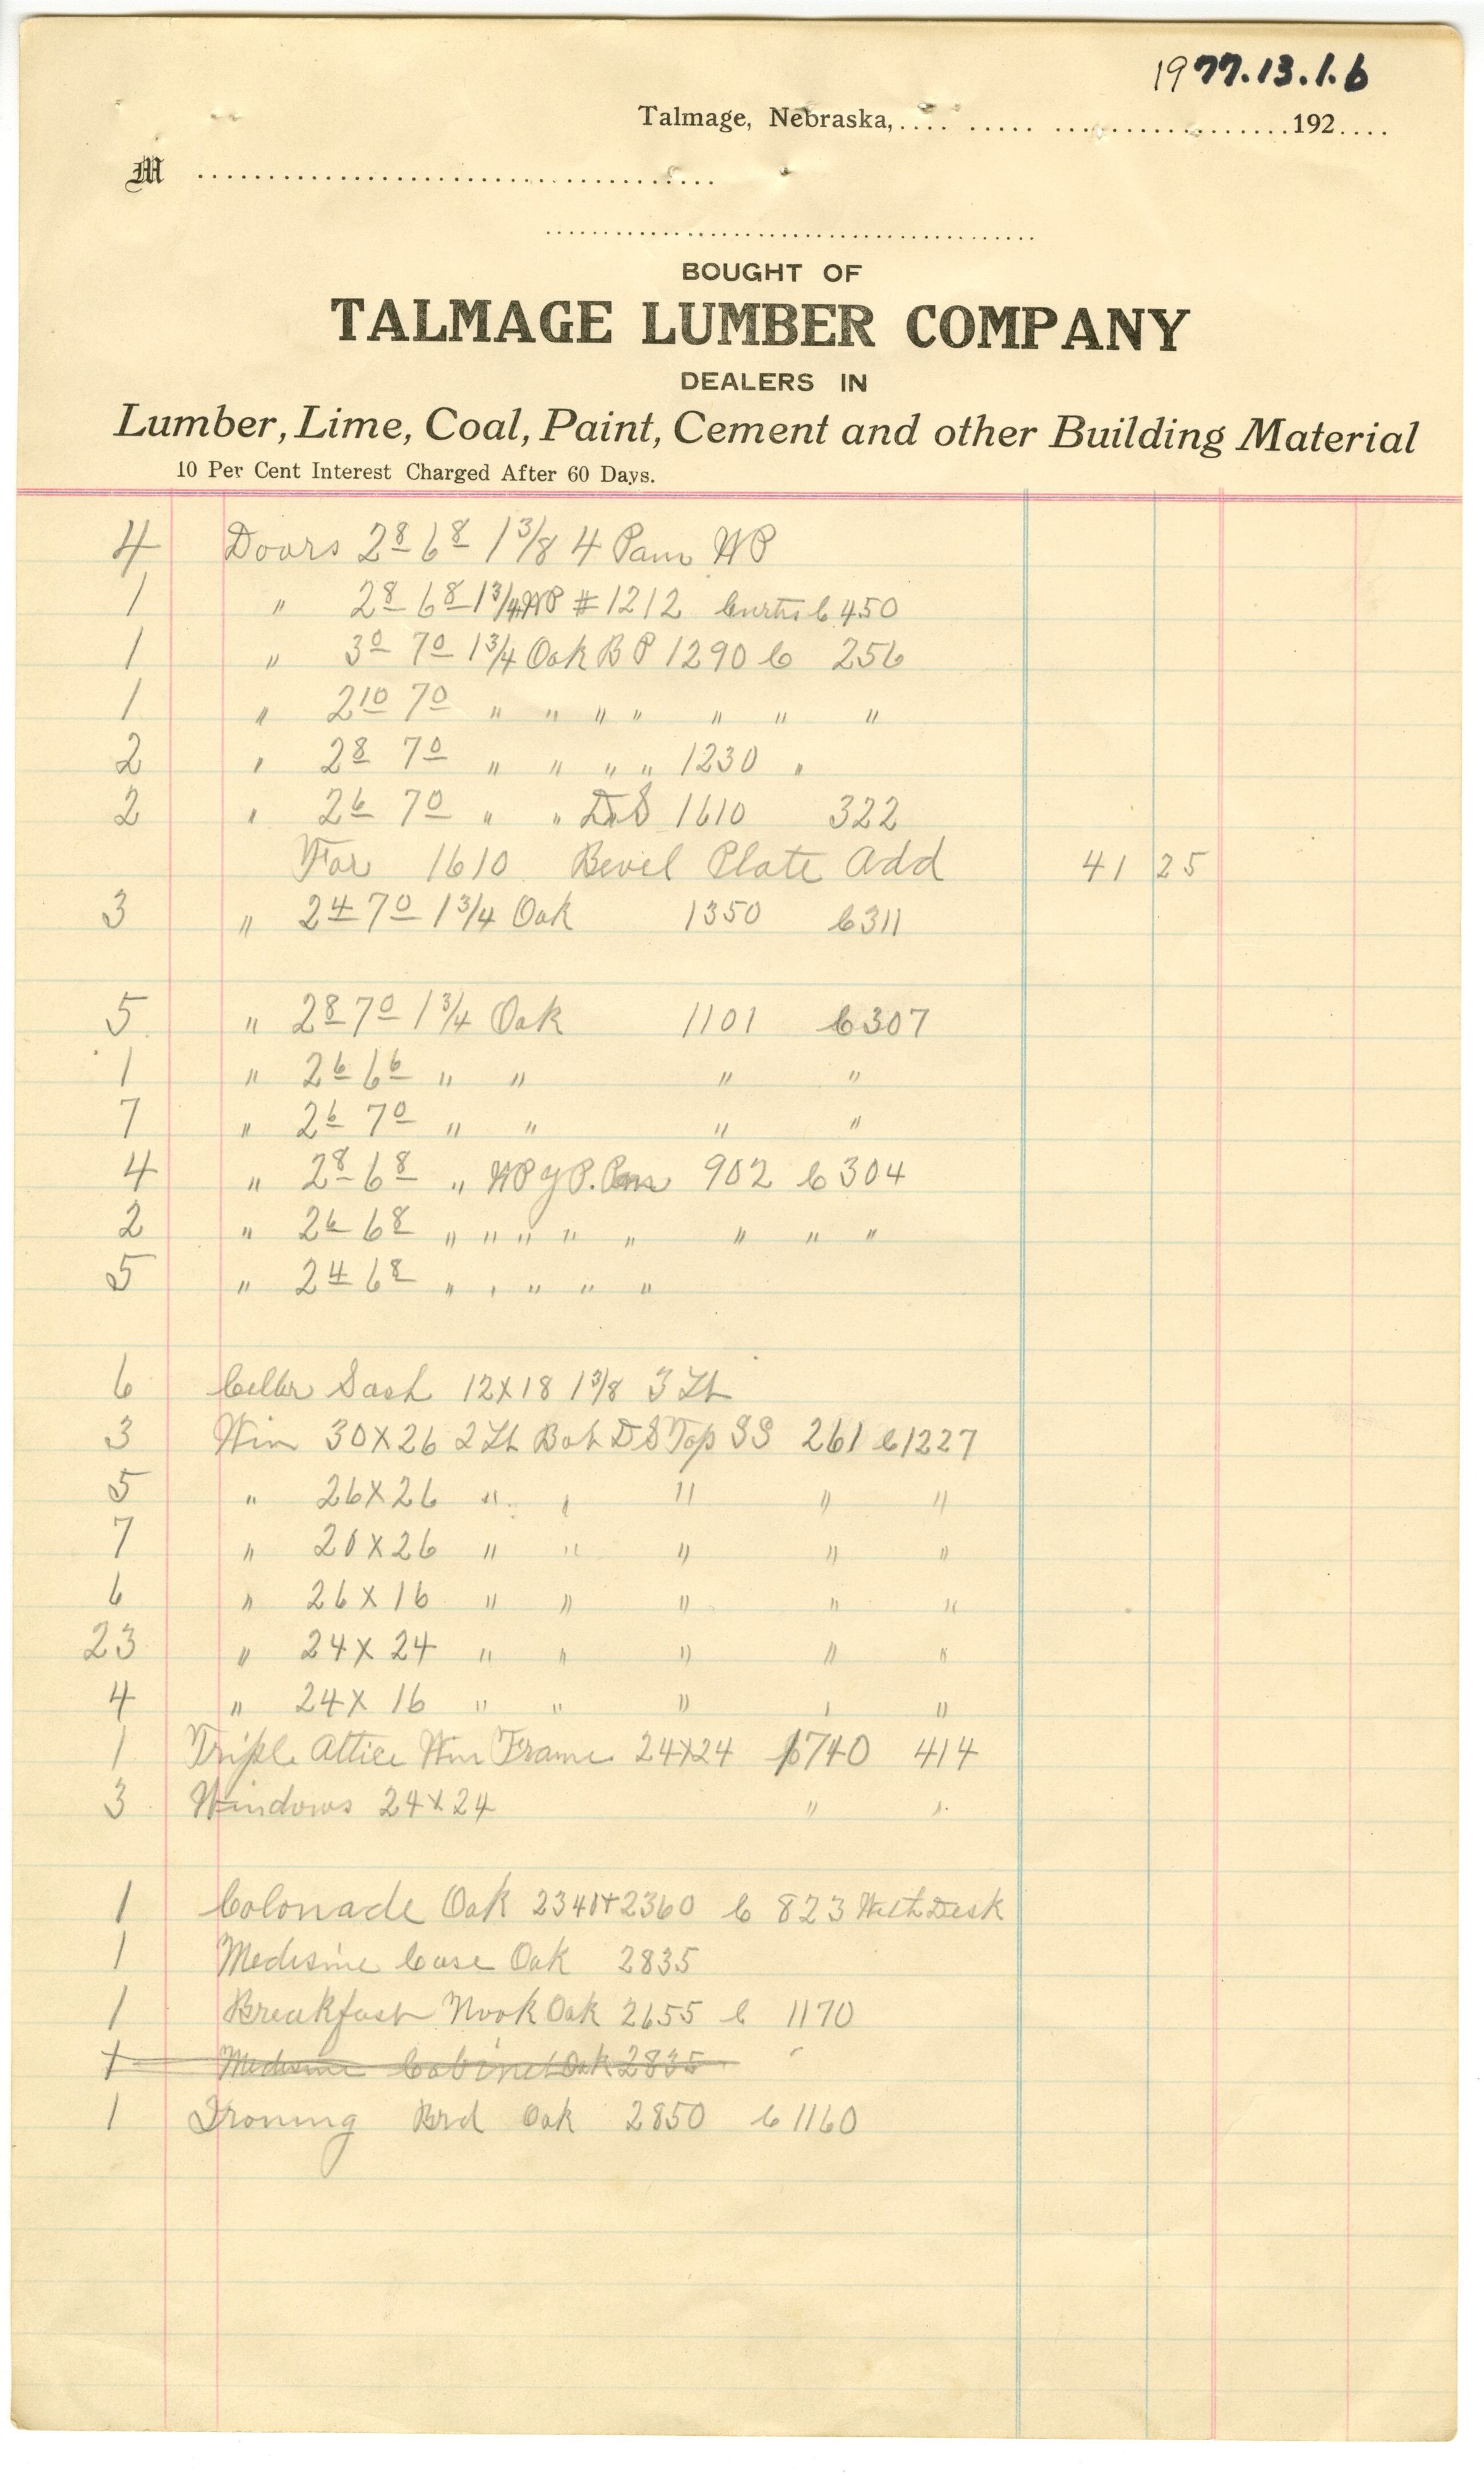 1977.13.1.6
Talmage, Nebraska,.... ..... ..................192....
M ......................................
........................................
BOUGHT OF
TALMAGE LUMBER COMPANY
DEALERS IN
Lumber, Lime, Coal, Paint, Cement and other Building Material
10 Per Cent Interest Charged After 60 Days.
4 Doors 2 8 6 8 1 3/8 4 Pam WP
1 " 2 8 6 8 1 3/4 WP #1212 Curtis C 450
1 " 3 0 7 0 1 3/4 Oak B P 1290 C 256
1 " 2 10 7 0 " " " " " " "
2 " 2 8 7 0 " " " " 1230 "
2 " 2 6 7 0 " " D.S 1610 322
For 1610 Bevel Plate Add 41 25
3 " 2 4 7 0 1 3/4 Oak 1350 C 311
5 " 2 8 7 0 1 3/4 Oak 1101 C 307
1 " 2 6 6 6 " " " "
7 " 2 6 7 0 " " " "
4 " 2 8 6 8 " WP YP. 902 C 304
2 " 2 6 6 8 " " " " " " " "
5 " 2 4 6 8 " " " " "
6 Celler Sash 12X18 1 3/8 3 Lt
3 Win 30X26 2 Lt Bot DS Top SS 261 C 1227
5 " 26X26 " " " " "
7 " 20X26 " " " " "
6 " 26X16 " " " " "
23 " 24X24 " " " " "
4 " 24X16 " " " " "
1 Triple Attice Win Frame 24X24 740 414
3 Windows 24X24 " "
1 Colonade Oak 2340+2360 C 823 With Desk
1 Medisine Case Oak 2835
1 Breakfast Nook Oak 2655 C 1170
1 Medisine Cabinet Oak 2835
1 Ironing Brd Oak 2850 C 1160